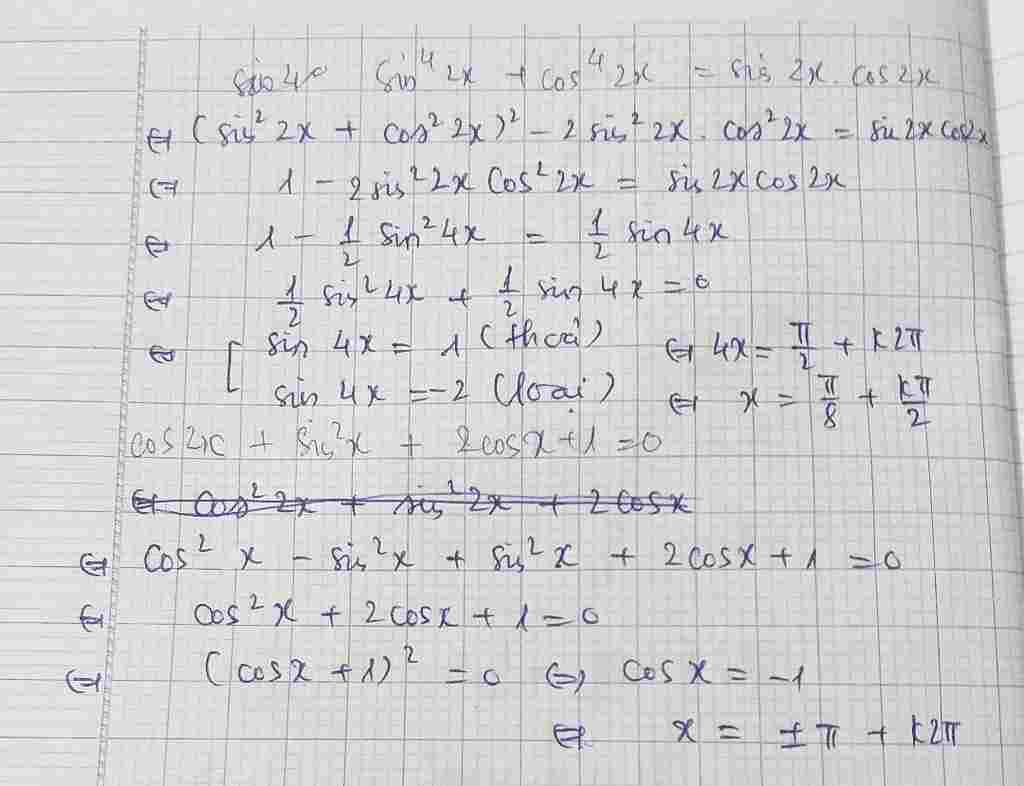 sin 4x sin⁴ 2x + cos⁴ 2x = sin 2x . cos 2x
⇔ (sin² 2x + cos² 2x)² - 2 sin² 2x . cos² 2x = sin 2x cos 2x
⇔ 1 - 2 sin² 2x cos² 2x = sin 2x cos 2x
⇔ 1 - 1/2 sin² 4x = 1/2 sin 4x
⇔ 1/2 sin² 4x + 1/2 sin 4x = 0
⇔ [ sin 4x = 1 (thoả) ⇔ 4x = π/2 + k2π
sin 4x = -2 (loại) ⇔ x = π/8 + kπ/2
cos 2x + sin² x + 2 cos x + 1 = 0
⇔ cos² 2x + sin² 2x + 2 cos x
⇔ cos² x - sin² x + sin² x + 2 cos x + 1 = 0
⇔ cos² x + 2 cos x + 1 = 0
⇔ (cos x + 1)² = 0 ⇔ cos x = -1
⇔ x = ± π + k2π